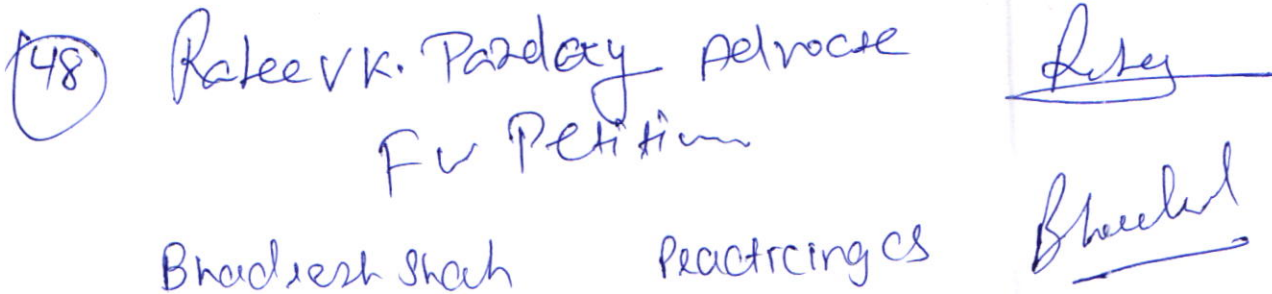 48 Rajeev K. Pandey Advocate
For Petition
Bhadresh Shah Practicing CS